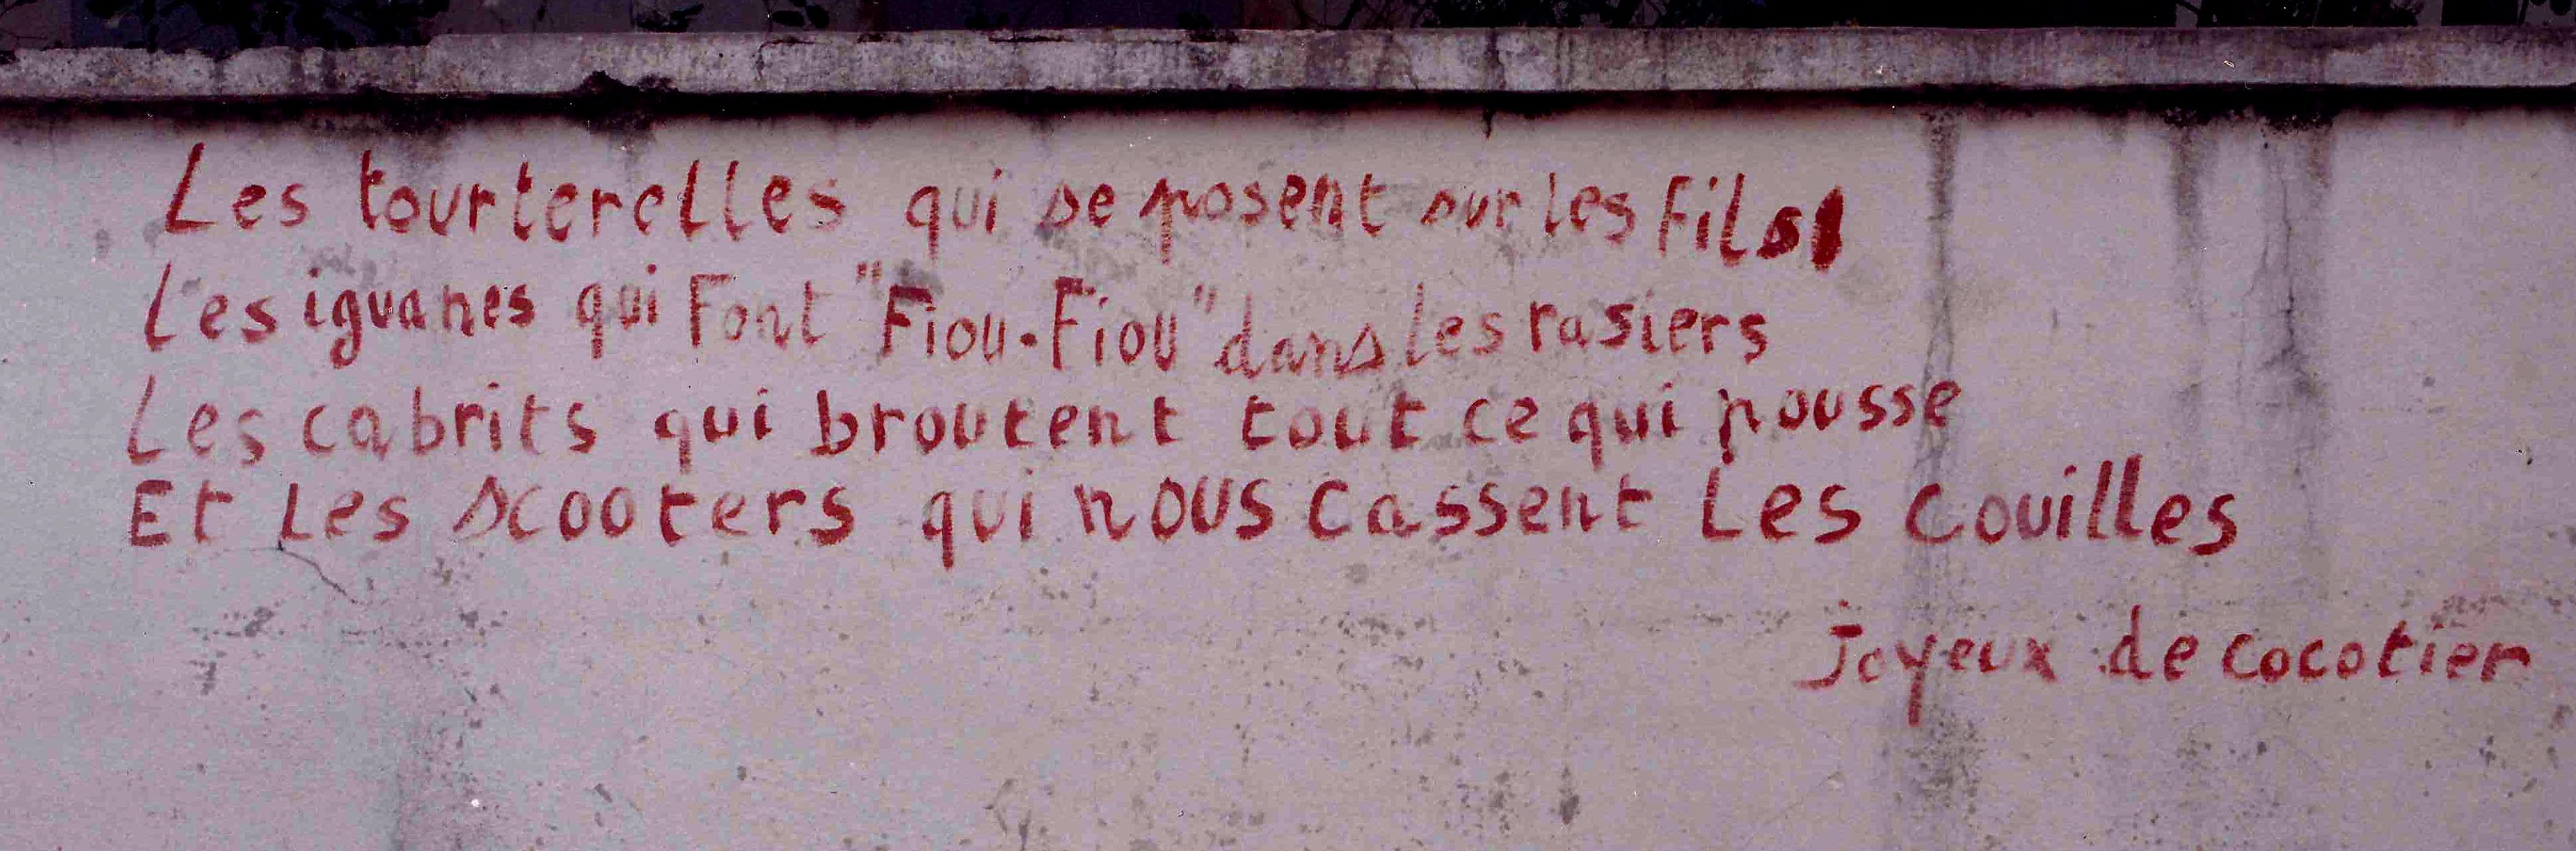 Les tourterelles qui se posent sur les fils
Les iguanes qui Font "Fiou-Fiou" dans les rasiers
Les cabrits qui broutent tout ce qui pousse
Et Les scooters qui nous cassent Les couilles
Joyeux de cocotier